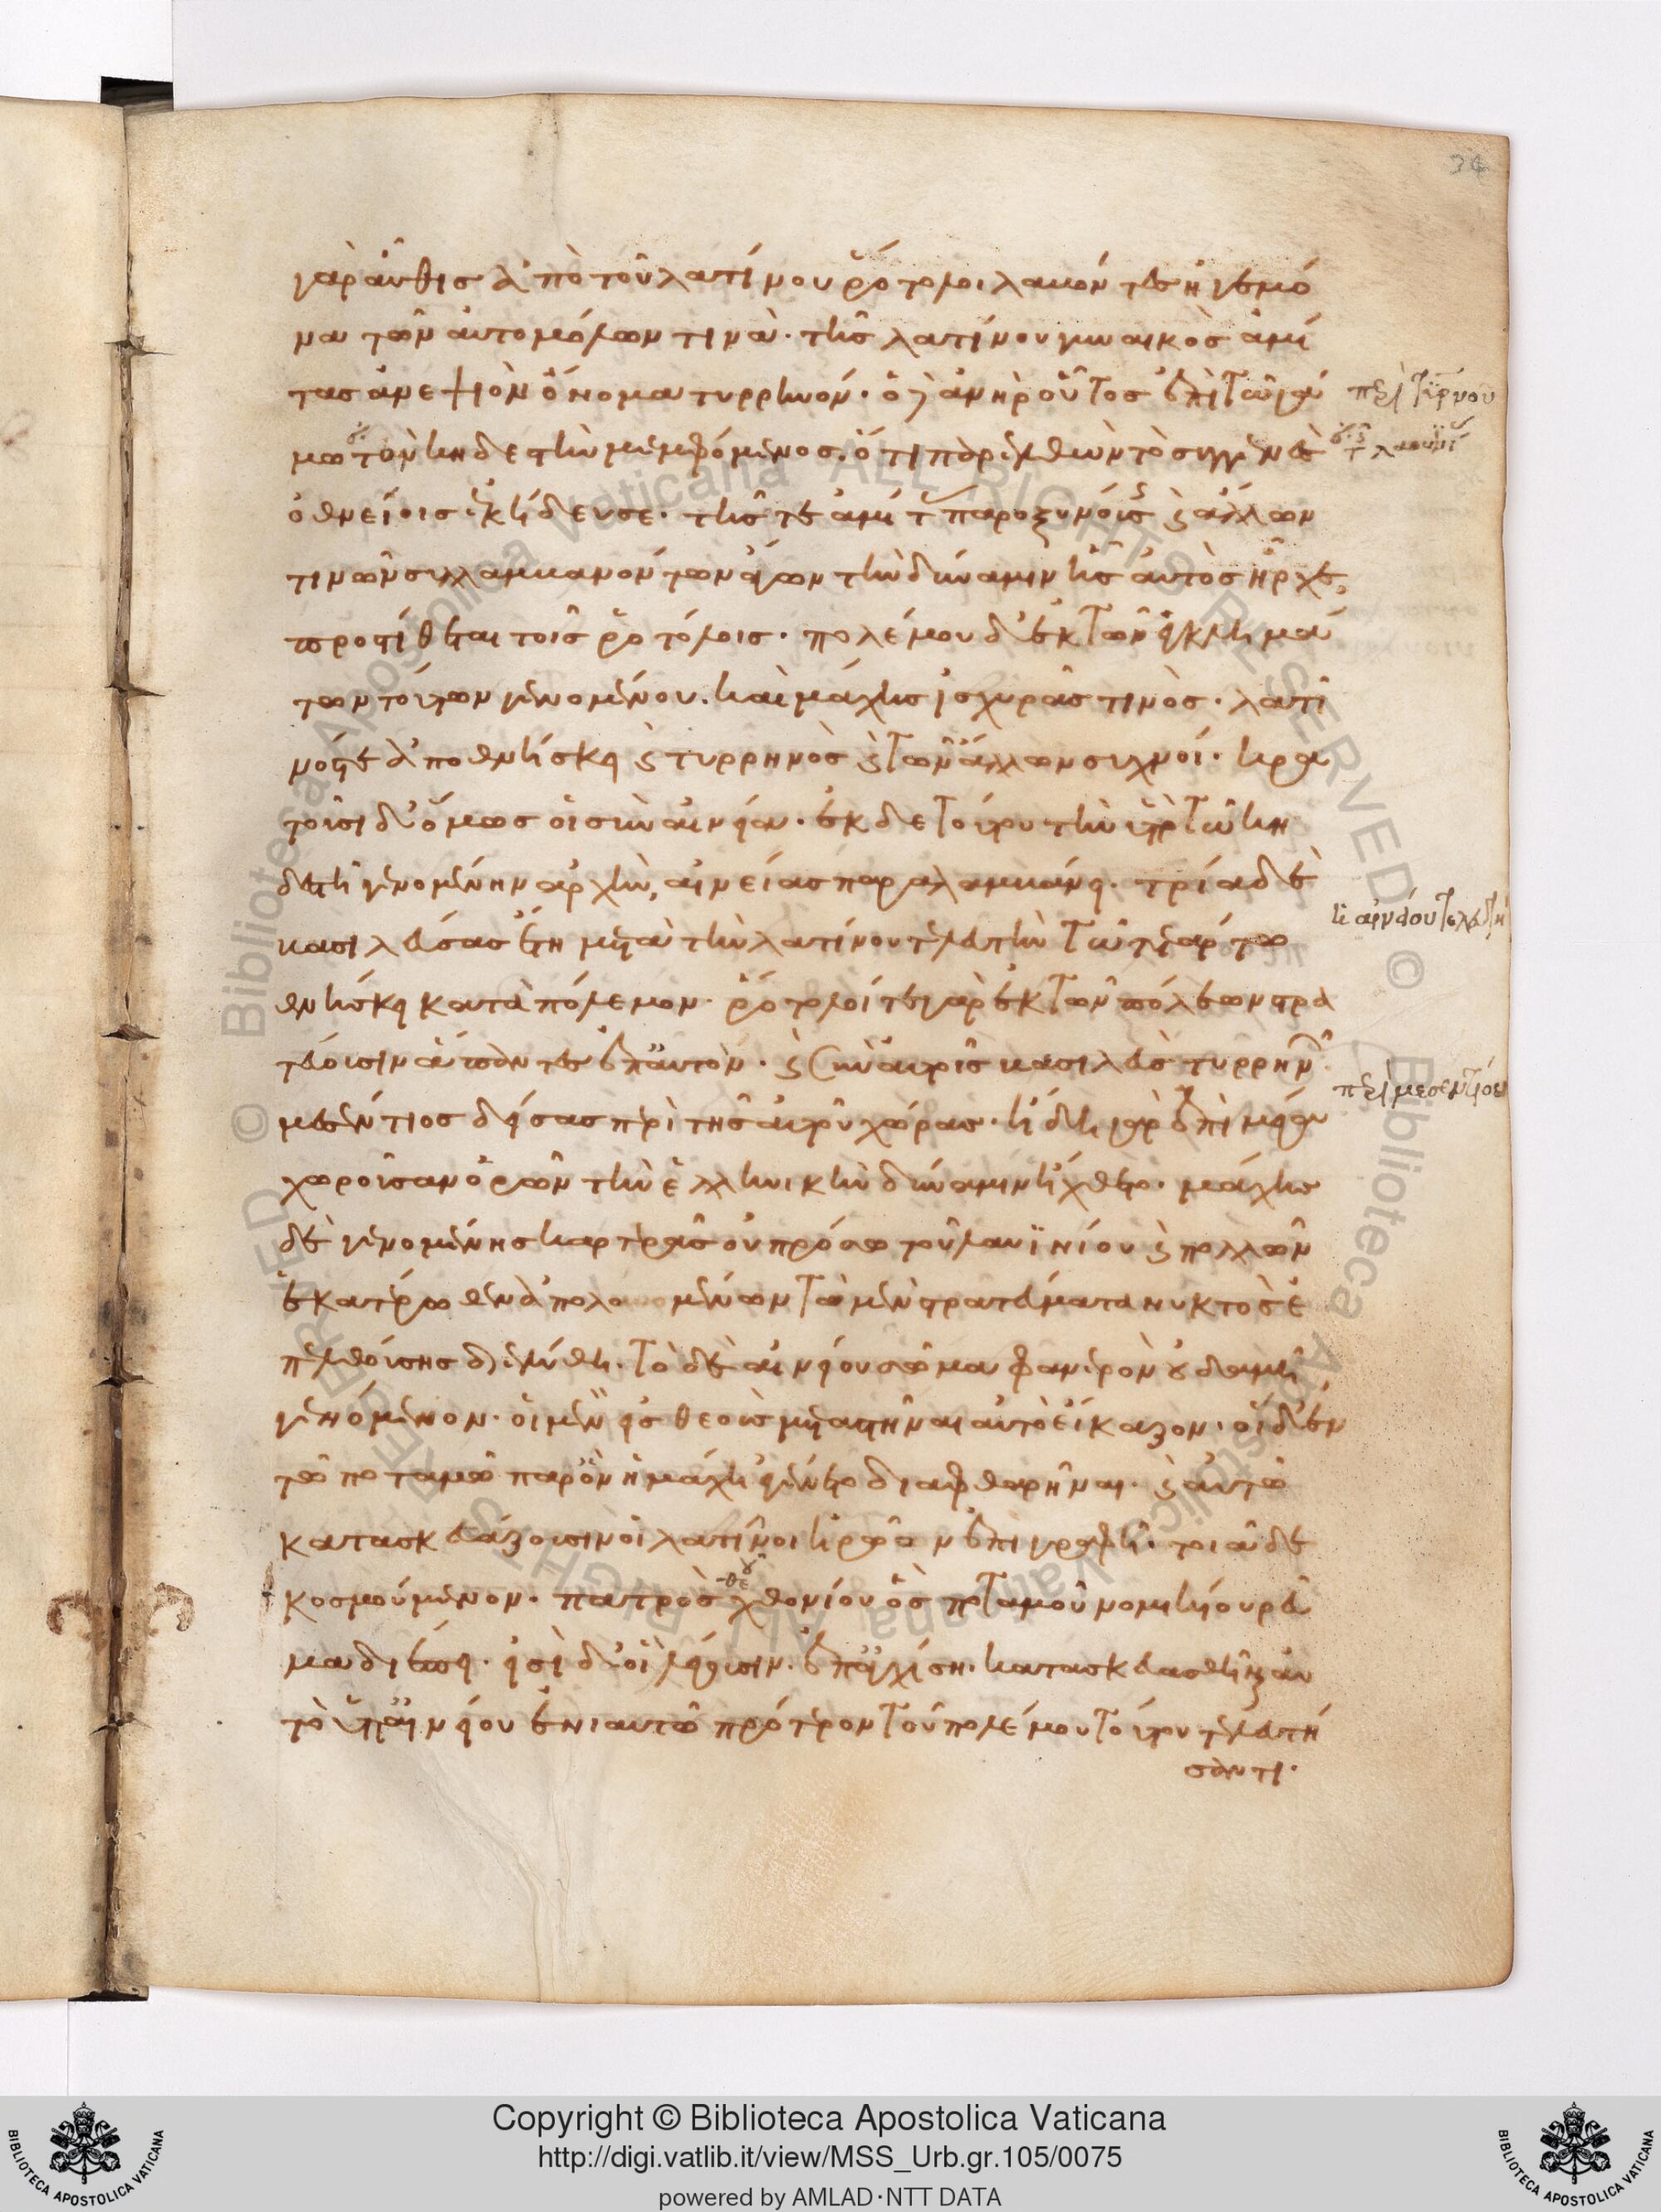 34
γὰρ αὖθις ἀπὸ τοῦ λατίνου ῥότολοι λαβόντες ἡγεμό
να τῶν αὐτομόλων τινὰ. τῆς λατίνου γυναικὸς ἀμί
τας ἀνεψιὸν ὄνομα τυρρηνόν. ὁ δὲ ἀνὴρ οὗτος ἐπὶ τῶι γά
μω τὸν κηδεστὴν μεμφόμενος. ὅτι παρελθὼν τὸ συγγενὲς
ὀθνείοις ἐκήδευσε. τῆς τε ἀμίτ παροξυνούσης καὶ ἄλλων
τινῶν συλλαμβανόντων ἄγων τὴν δύναμιν ἧς αὐτὸς ἦρχε,
προστίθεται τοῖς ῥοτόλοις. πολέμου δ' ἐκ τῶν ἐγκλημά
των τούτων γενομένου. καὶ μάχης ἰσχυρᾶς τινὸς. λατῖ
νός τε ἀποθνήσκει καὶ τυρρηνὸς καὶ τῶν ἄλλων συχνοί. κρα
τοῦσι δ' ὅμως οἱ σὺν αἰνείαι. ἐκ δε τούτου τὴν ὑπὸ τῶ κη
δεστῆ γενομένην ἀρχὴν, αἰνείας παραλαμβάνει. τρία δὲ
βασιλεύσας ἔτη μετὰ τὴν λατίνου τελευτὴν τῶ τετάρτω
θνήσκει κατὰ πόλεμον. ῥότολοί τε γὰρ ἐκ τῶν πόλεων στρα
τεύουσιν ἅπαντες ἐπ' αὐτὸν. καὶ σὺν αὐτοῖς βασιλεὺς τυρρην
μεσέντιος δείσας περὶ τῆς αὐτοῦ χώρας. ἤδη γὰρ ἐπὶ μέγα
χωροῦσαν ὁρῶν τὴν ἑλληνικὴν δύναμιν ἤχθετο. μάχης
δὲ γενομένης καρτερᾶς οὐ πρόσω τοῦ λαυϊνίου καὶ πολλῶν
ἑκατέρωθεν ἀπολομένων τὰ μὲν στρατεύματα νυκτὸς ἐ
πελθούσης διελύθη. τὸ δὲ αἰνείου σῶμα φανερὸν οὐδαμῆ
γενόμενον. οἱ μὲν εἰς θεοὺς μεταστῆναι αὐτὸ εἴκαζον. οἱ δ' ἐν
τῶ ποταμῶ παρ' ὃν ἡ μάχη ἐγένετο διαφθαρῆναι. καὶ αὐτῶ
κατασκευάζουσιν οἱ λατῖνοι ἡρῶον ἐπιγραφῆ. τοιᾶδε
κοσμούμενον. πατρὸς θεοῦ χθονίου ὃς ποταμοῦ νομικίου ῥεῦ
μα διέπει. εἰσὶ δ' οἳ λέγουσιν. ἐπ' ἀγχίση. κατασκευασθῆναι αὐ
τὸ ὑπ' αἰνείου ἐνιαυτῶ πρότερον τοῦ πολέμου τούτου τελευτή
σαντι.
περὶ τύρνου
ἡ αἰνείου τελευτὴ
περὶ μεσεντίου
Copyright © Biblioteca Apostolica Vaticana
http://digi.vatlib.it/view/MSS_Urb.gr.105/0075
powered by AMLAD·NTT DATA
BIBLIOTECA APOSTOLICA VATICANA
BIBLIOTECA APOSTOLICA VATICANA